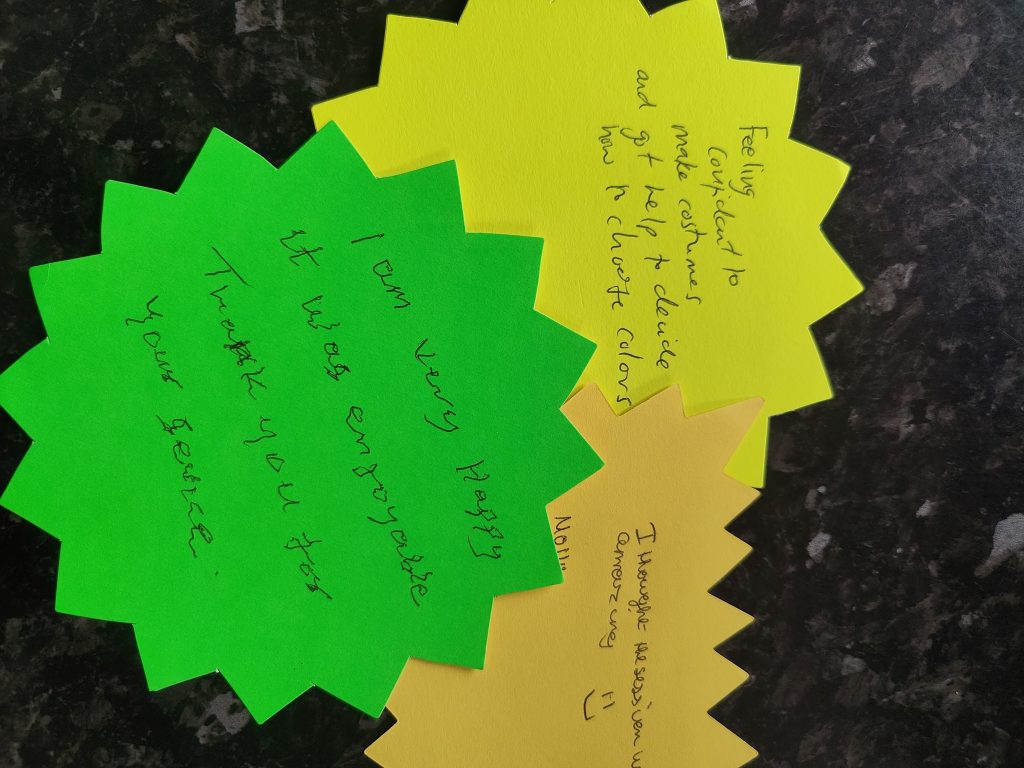 Feeling
confident to
make costumes
and got help to decide
how to choose colors
I am very Happy
it was enjoyable
Thank you for
your service.
I thought the session w
amazing :)